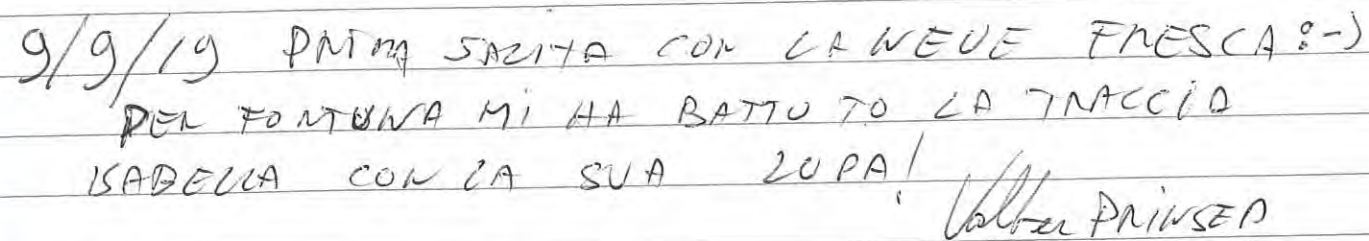 9/9/19 PRIMA SALITA CON LA NEVE FRESCA :-)
PER FORTUNA MI HA BATTUTO LA TRACCIA
ISABELLA CON LA SUA LUPA!
Valter PRINSER